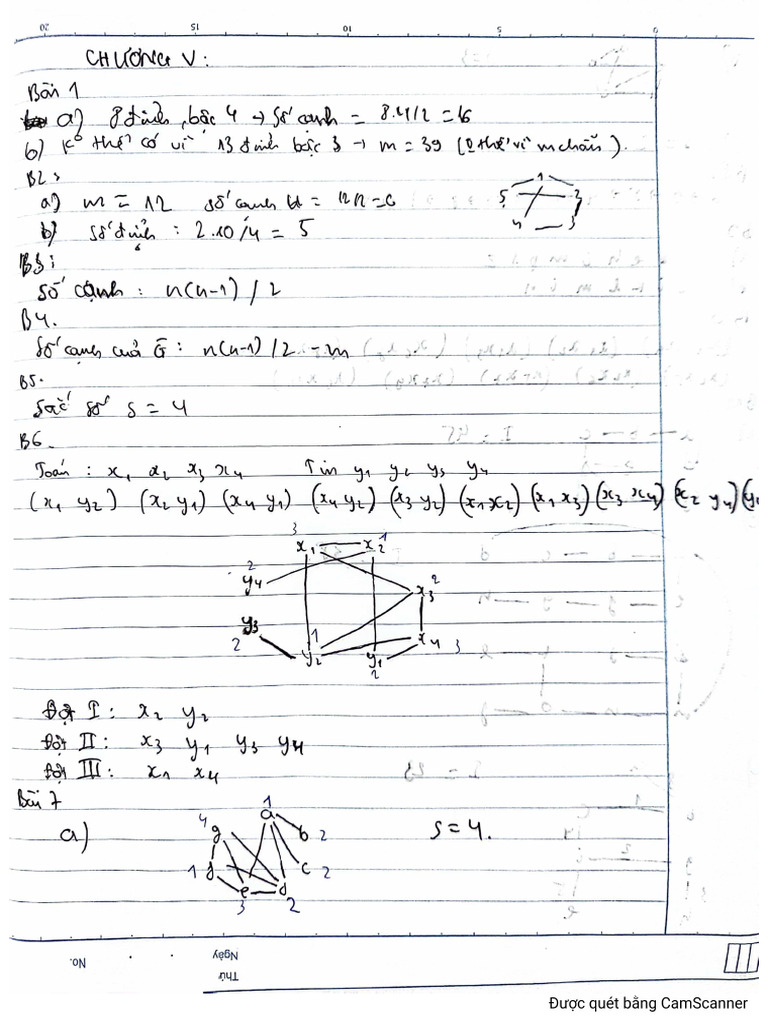 CHƯƠNG V:
Bài 1
a) 8 đỉnh, bậc 4 → số cạnh = 8.4/2 = 16
b) K° thể có vì 13 đỉnh bậc 3 → m = 39 (0 thể vì m chẵn).
B2:
a) m = 12 số cạnh = 12/2 = 6
b) số đỉnh : 2.10/4 = 5
1 5 2 4 3
B3:
Số cạnh : n(n-1) / 2
B4.
Số cạnh của G̅ : n(n-1) /2 - m
B5.
Sắc số s = 4
B6.
Toán : x1 x2 x3 x4 Tin y1 y2 y3 y4
(x1 y2) (x2 y1) (x4 y1) (x4 y2) (x3 y2) (x1 x2) (x1 x3) (x3 x4) (x2 y4) (y2
3 x1 x2 1
2 y4 x3 2
y3 2 1 y2 y1 2 x4 3
Đợt I : x2 y2
Đợt II : x3 y1 y3 y4
Đợt III : x1 x4
Bài 7
a) s = 4.
1 a
4 g b 2
1 f c 2
e d
3 2
20 15 10 5 0
No. Ngày
Thứ
Được quét bằng CamScanner